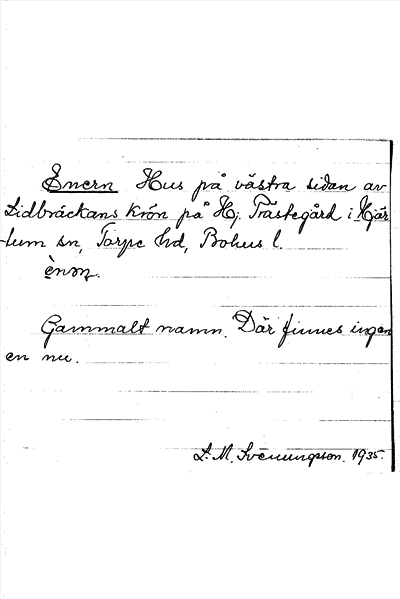 Enern Hus på västra sidan av
Lidbräckans krön på Hj. Prästegård i Hjär
tum sn, Torpe hd, Bohus l.
ènəɳ.
Gammalt namn. Där finnes ingen
en nu.
L. M. Svenungsson. 1935.